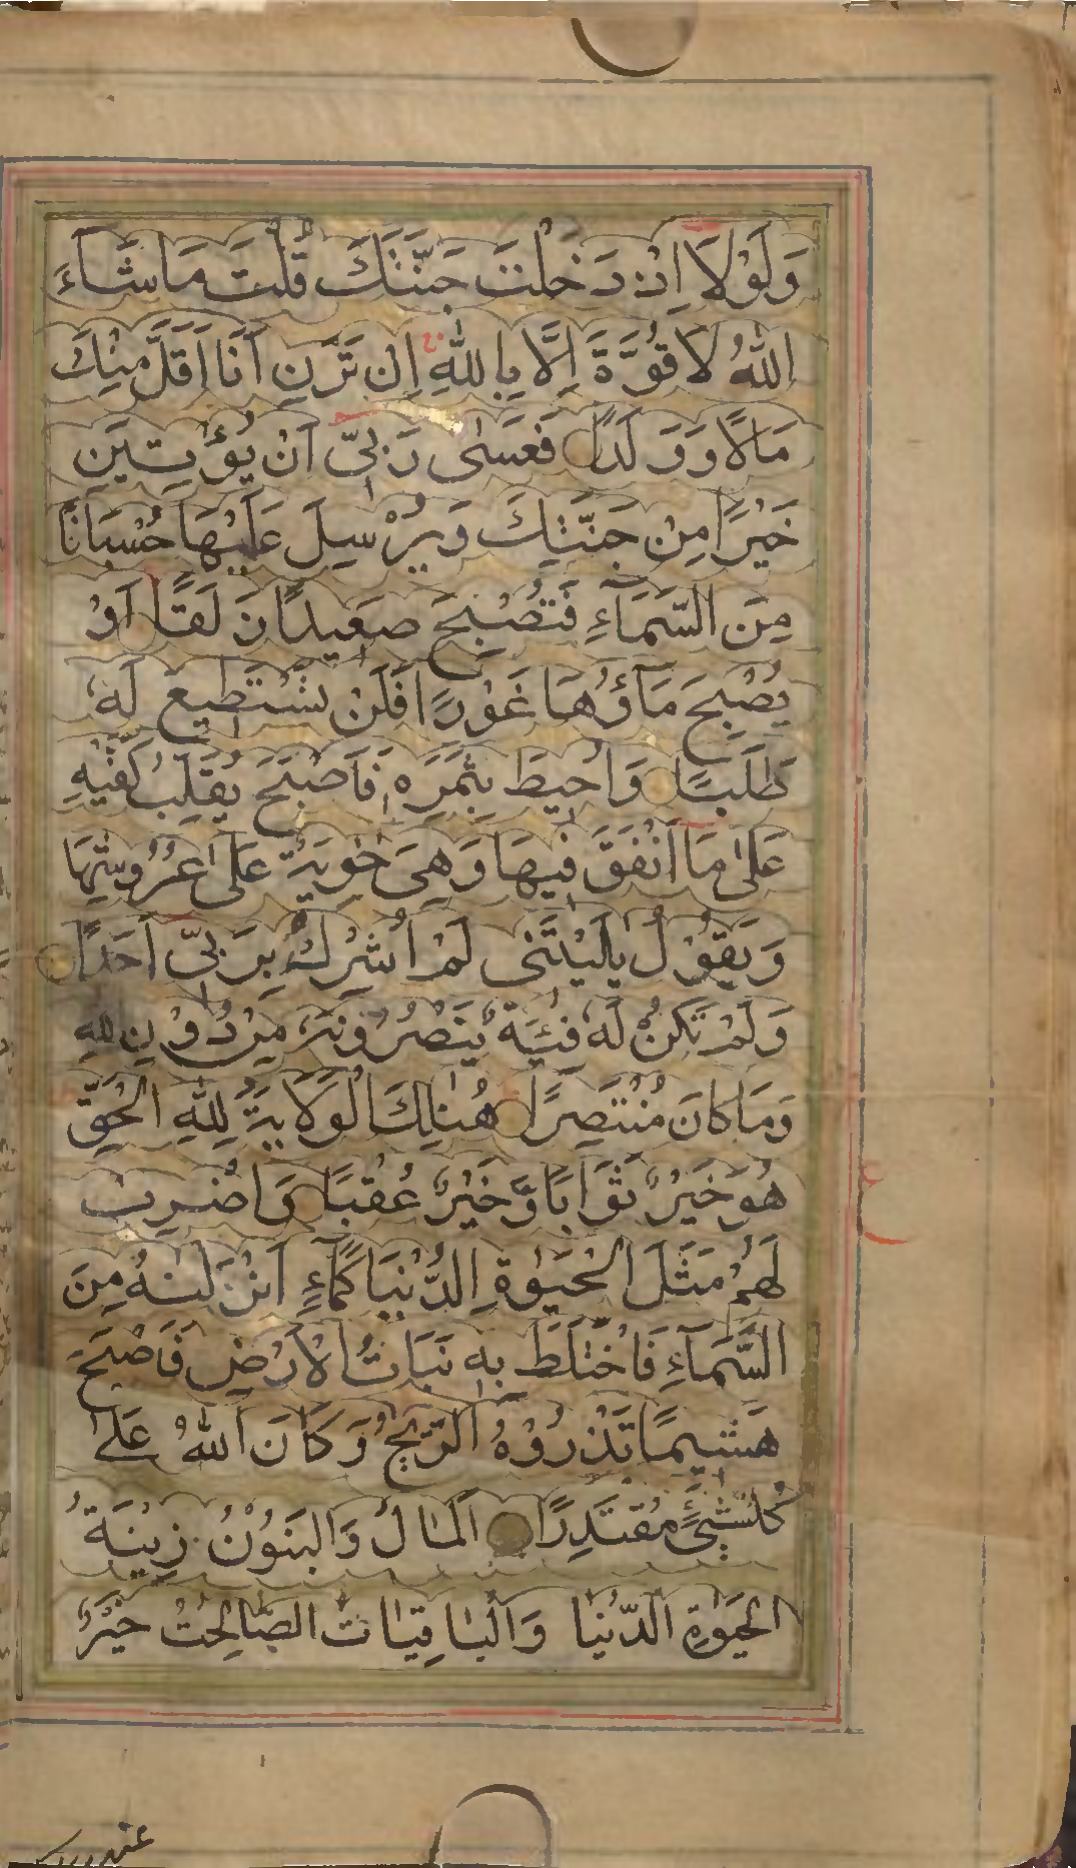 وَلَوْلَا اِذْ دَخَلْتَ جَنَّتَكَ قُلْتَ مَا شَاءَ
اللّٰهُ لَا قُوَّةَ اِلَّا بِاللّٰهِ اِنْ تَرَنِ اَنَا اَقَلَّ مِنْكَ
مَالًا وَوَلَدًا فَعَسٰى رَبِّىْ اَنْ يُؤْتِيَنِ
خَيْرًا مِنْ جَنَّتِكَ وَيُرْسِلَ عَلَيْهَا حُسْبَانًا
مِنَ السَّمَآءِ فَتُصْبِحَ صَعِيدًا زَلَقًا اَوْ
يُصْبِحَ مَآؤُهَا غَوْرًا فَلَنْ تَسْتَطِيعَ لَهٗ
طَلَبًا وَاُحِيطَ بِثَمَرِهٖ فَاَصْبَحَ يُقَلِّبُ كَفَّيْهِ
عَلٰى مَا اَنْفَقَ فِيهَا وَهِىَ خَاوِيَةٌ عَلٰى عُرُوشِهَا
وَيَقُوْلُ يَالَيْتَنِى لَمْ اُشْرِكْ بِرَبِّىْ اَحَدًا
وَلَمْ تَكُنْ لَهٗ فِئَةٌ يَنْصُرُوْنَهٗ مِنْ دُوْنِ اللّٰهِ
وَمَا كَانَ مُنْتَصِرًا هُنَالِكَ الْوَلَايَةُ لِلّٰهِ الْحَقِّ
هُوَ خَيْرٌ ثَوَابًا وَّخَيْرٌ عُقْبًا وَاضْرِبْ
لَهُمْ مَثَلَ الْحَيٰوةِ الدُّنْيَا كَمَآءٍ اَنْزَلْنٰهُ مِنَ
السَّمَآءِ فَاخْتَلَطَ بِهٖ نَبَاتُ الْاَرْضِ فَاَصْبَحَ
هَشِيمًا تَذْرُوْهُ الرِّيٰحُ وَكَانَ اللّٰهُ عَلٰى
كُلِّ شَىْءٍ مُقْتَدِرًا اَلْمَالُ وَالْبَنُوْنُ زِيْنَةُ
الْحَيٰوةِ الدُّنْيَا وَالْبَاقِيَاتُ الصَّالِحٰتُ خَيْرٌ
ع
عند ربك